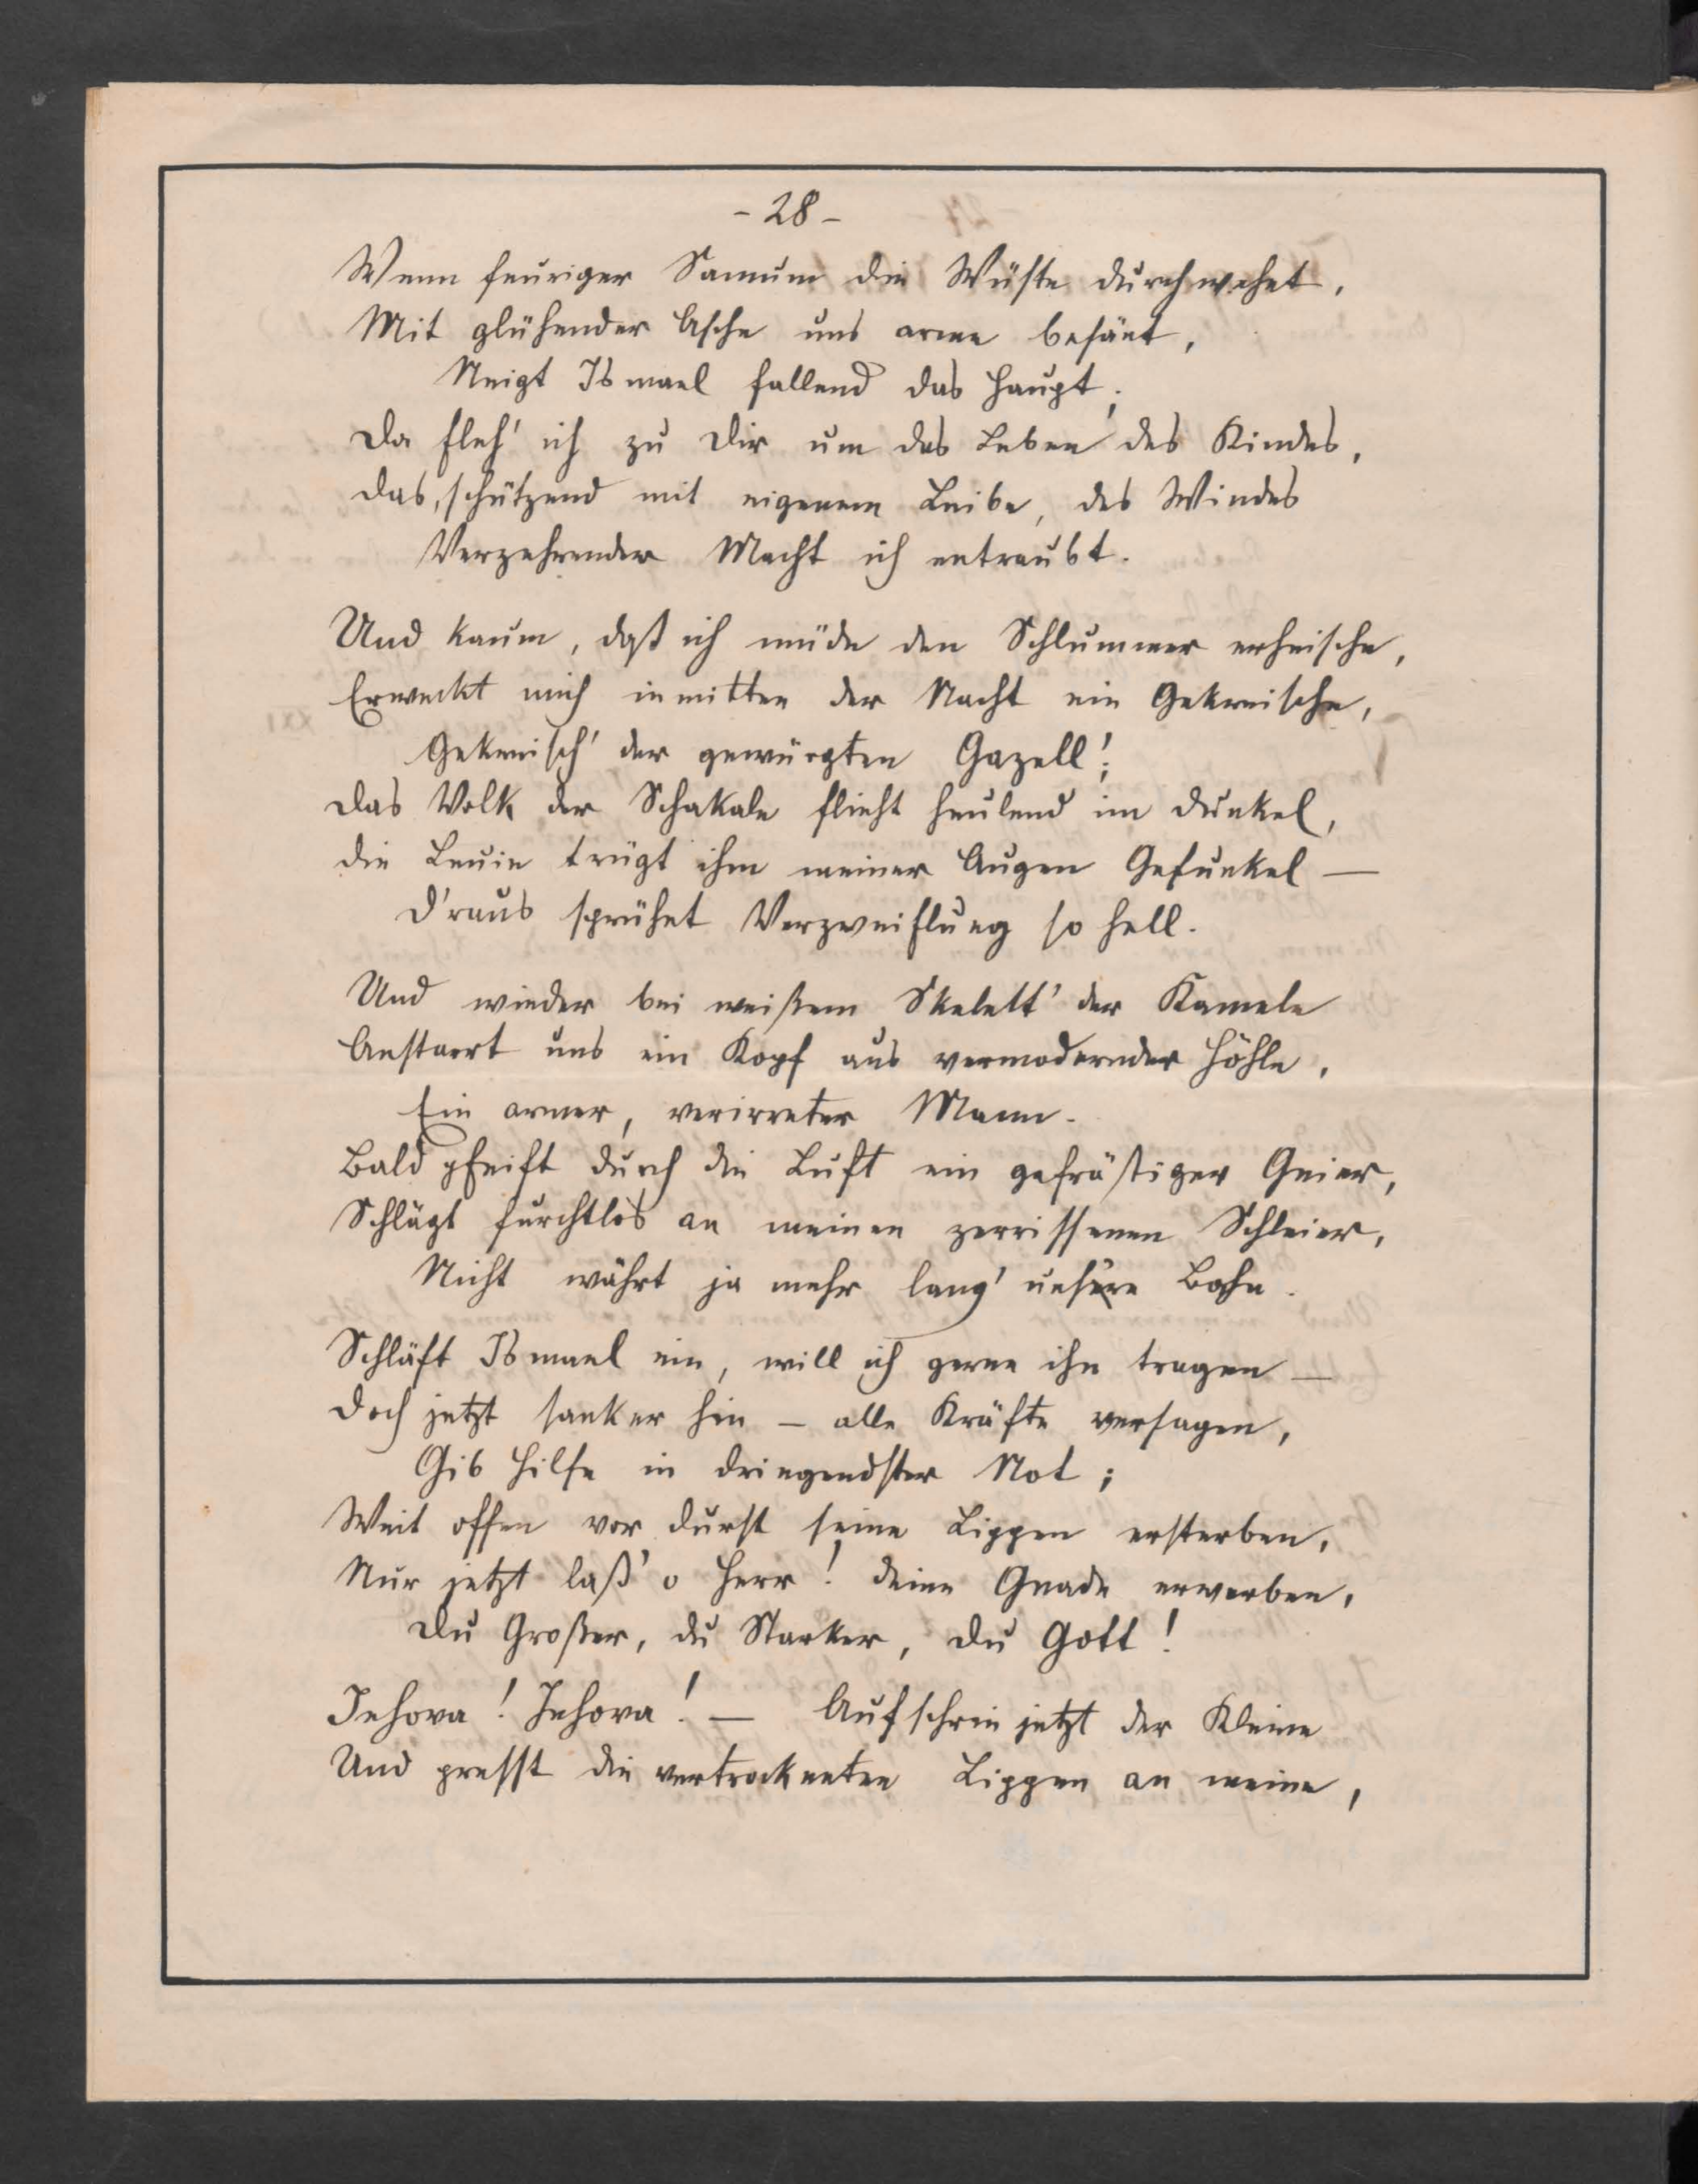 - 28 -
Wenn feuriger Samum die Wüste durchwehet,
Mit glühender Asche uns arme besäet,
Neigt Ismael fallend das Haupt;
Da fleh' ich zu Dir um das Leben des Kindes,
Das, schützend mit eigenem Leibe, des Windes
Verzehrender Macht ich entraubt.
Und kaum, daß ich müde den Schlummer erheische,
Erweckt mich inmitten der Nacht ein Gekreische,
Gekreisch' der gewürgten Gazell';
Das Volk der Schakale flieht heulend im Dunkel,
Die Leuin trügt ihm meiner Augen Gefunkel —
D'raus sprühet Verzweiflung so hell.
Und wieder bei weißem Skelett' der Kamele
Anstarrt uns ein Kopf aus vermodernder Höhle,
Ein armer, verirreter Mann.
Bald pfeift durch die Luft ein gefräßiger Geier,
Schlägt furchtlos an meinen zerrissenen Schleier,
Nicht währt ja mehr lang' unsere Bahn.
Schläft Ismael ein, will ich gerne ihn tragen —
Doch jetzt sank er hin — alle Kräfte versagen,
Gib Hilfe in dringendster Not;
Weit offen vor Durst seine Lippen ersterben,
Nur jetzt laß' o Herr! deine Gnade erwerben,
Du Großer, du Starker, du Gott!
Jehova! Jehova! — Aufschrie jetzt der Kleine
Und presst die vertrockneten Lippen an meine,